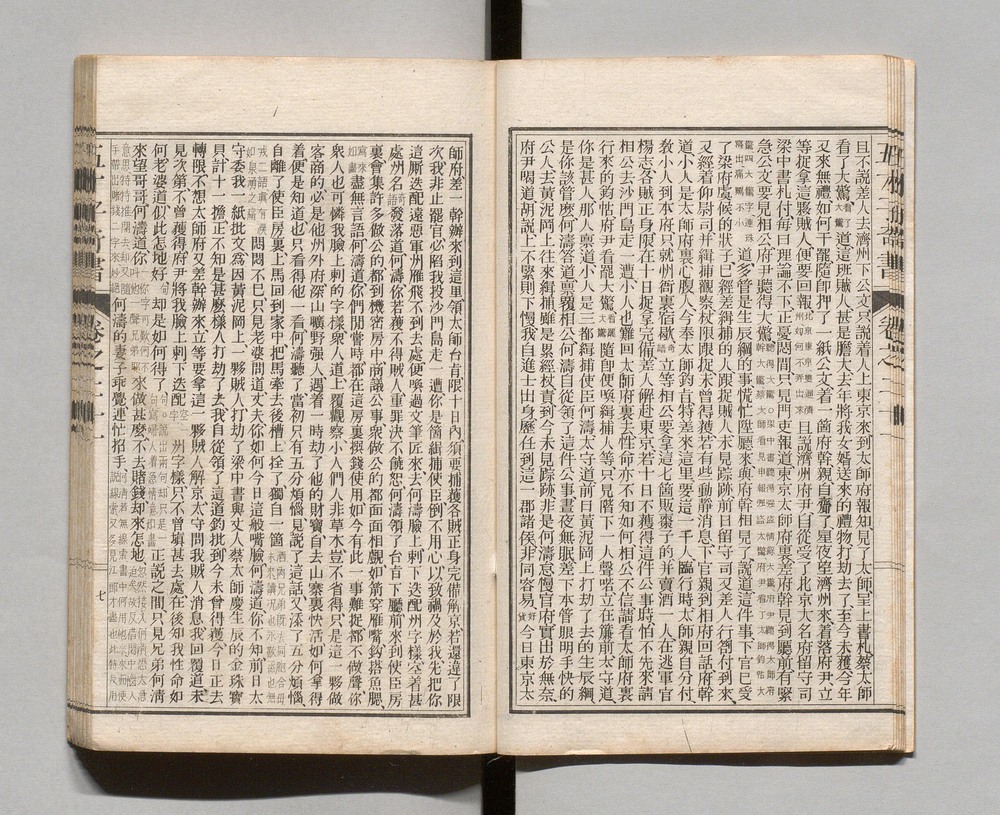 且不說差人去濟州下公文只說着人上東京來到太師府報知見了太師呈上書札蔡太師
看了大驚道這班賊人甚是膽大去年將我女婿送來的禮物打劫去了至今未獲今年
又來無禮如何干罷隨即押了一紙公文着一箇府幹親自齎了星夜望濟州來着落府尹立
等捉拿這夥賊人便要回報且說濟州府尹自從受了北京大名府留守司
梁中書札付每日理論不下正憂悶間只見門吏報道東京太師府裏差府幹見到廳前有緊
急公文要見相公府尹聽得大驚
道多管是生辰綱的事慌忙陞廳來與府幹相見了說道這件事下官已受
了梁府虞候的狀子已經差緝捕的人跟捉賊人未見踪跡前日留守司又差人行劄付到來
又經着仰尉司并緝捕觀察杖限跟捉未曾得獲若有些動靜消息下官親到相府回話府幹
道小人是太師府裏心腹人今奉太師鈞旨特差來這里要這一干人臨行時太師親自分付
敎小人到本府只就州衙裏宿歇立等相公要拿這七箇販棗子的并賣酒一人在逃軍官
楊志各賊正身限在十日捉拿完備差人解赴東京若十日不獲得這件公事時怕不先來請
相公去沙門島走一遭小人也難回太師府裏去性命亦不知如何相公不信請看太師府裏
行來的鈞帖府尹看罷大驚隨即便喚緝捕人等只見階下一人聲喏立在簾前太守道
你是甚人那人稟道小人是三都緝捕使臣何濤太守道前日黃泥岡上打劫了去的生辰綱
是你該管麼何濤答道稟覆相公何濤自從領了這件公事晝夜無眠差下本管眼明手快的
公人去黃泥岡上往來緝捕雖是累經杖責到今未見踪跡非是何濤怠慢官府實出於無奈
府尹喝道胡說上不緊則下慢我自進士出身歷任到這一郡諸侯非同容易今日東京太
師府差一幹辦來到這里領太師台旨限十日內須要捕獲各賊正身完備解京若還違了限
次我非止罷官必陷我投沙門島走一遭你是箇緝捕使臣倒不用心以致禍及於我先把你
這厮迭配遠惡軍州雁飛不到去處便喚過文筆匠來去何濤臉上刺下迭配州字樣空着甚
處州名發落道何濤你若獲不得賊人重罪決不饒恕何濤領了台旨下廳前來到使臣房
裏會集許多做公的都到機密房中商議公事衆做公的都面面相覷如箭穿雁嘴鈎搭魚腮
盡無言語何濤道你們閒常時都在這房裏撰錢使用如今有此一事難捉都不做聲你
衆人也可憐我臉上刺的字樣衆人道上覆觀察小人們人非草木豈不省得只是這一夥做
客商的必是他州外府深山曠野强人遇着一時劫了他的財寶自去山寨裏快活如何拿得
着便是知道也只看得他一看何濤聽了當初只有五分煩惱見說了這話又添了五分煩惱
自離了使臣房裏上馬回到家中把馬牽去後槽上拴了獨自一箇
悶悶不已只見老婆問道丈夫你如何今日這般嘴臉何濤道你不知前日太
守委我一紙批文爲因黃泥岡上一夥賊人打劫了梁中書與丈人蔡太師慶生辰的金珠寶
貝計十一擔正不知是甚麼樣人打劫了去我自從領了這道鈞批到今未曾得獲今日正去
轉限不想太師府又差幹辦來立等要拿這一夥賊人解京太守問我賊人消息我回覆道未
見次第不曾獲得府尹將我臉上刺下迭配州字樣只不曾塡甚去處在後知我性命如
何老婆道似此怎地好却是如何得了正說之間只見兄弟何淸
來望哥哥何濤道你來做甚麼不去賭錢却來怎地
何濤的妻子乖覺連忙招手
卷之二十一
七